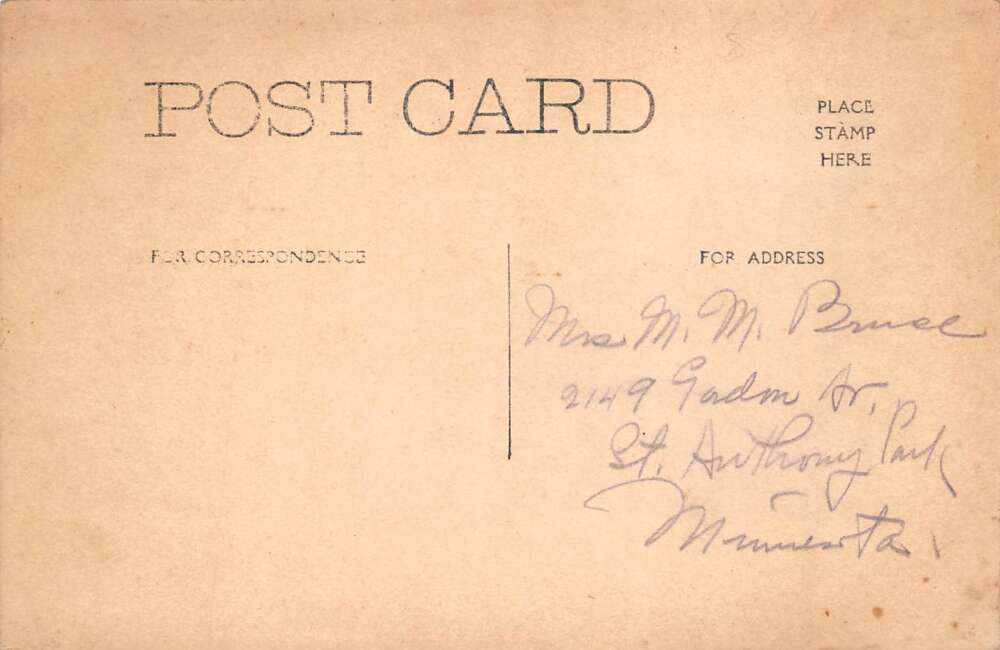 POST CARD
PLACE
STAMP
HERE
FOR CORRESPONDENCE
FOR ADDRESS
Mrs M. M. Bruce
2149 Gordon Av.
St. Anthony Park
Minnesota